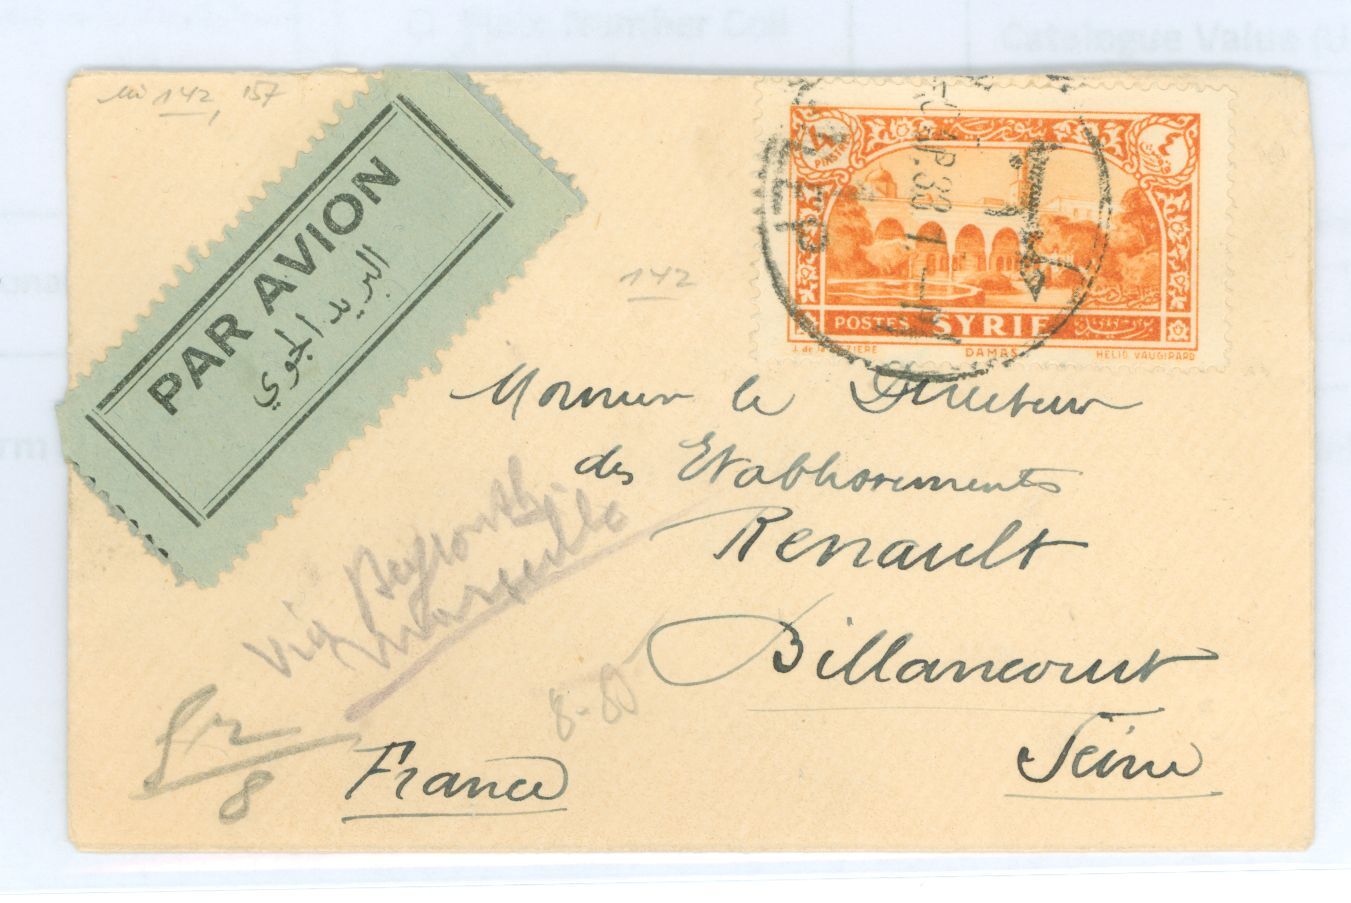 Mi 142, 157
PAR AVION
البريد الجوي
4
PIASTRES
٤
ALEP
AP. 33
POSTES SYRIE
J. de la NEZIERE DAMAS HELIO VAUGIRARD
142
Monsieur le Directeur
des Etablissements
Renault
Billancourt
Seine
France
via Beyrouth
Marseille
8-80
8